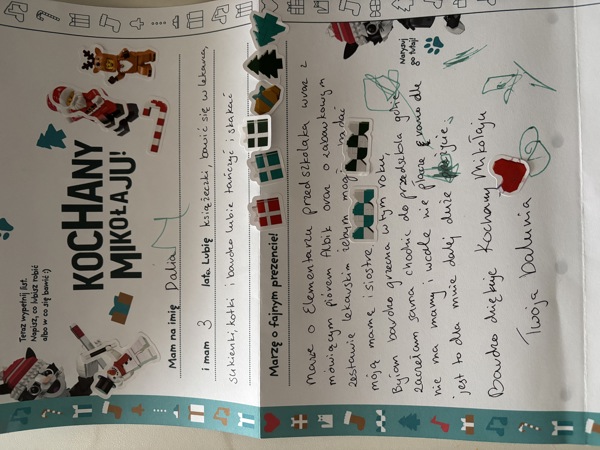 Teraz wypełnij list.
Napisz, co lubisz robić
albo w co się bawić :)
KOCHANY
MIKOŁAJU!
Mam na imię Dalia
i mam 3 lata Lubię książeczki, bawić się w lekarza,
sukienki, kotki i bardzo lubię tańczyć i skakać
Marzę o fajnym prezencie!
Marzę o Elementarzu przedszkolaka wraz z
mówiącym piórem Albik oraz o zabawkowym
zestawie lekarskim żebym mogła badać
moją mamę i siostrę.
Byłam bardzo grzeczna w tym roku,
zaczęłam sama chodzić do przedszkola gdzie
nie ma mamy i wcale nie płaczę rano ale
jest to dla mnie dalej duże
Bardzo dziękuję Kochany Mikołaju
Twoja Dalunia
Narysuj
go tutaj!